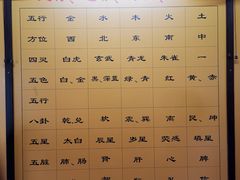 五行 金 水 木 火 土
方位 西 北 东 南 中
四灵 白虎 玄武 青龙 朱雀 一
五色 白、金 黑、深蓝 绿、青 红 黄、棕
五行
八卦 乾、兑 坎 震、巽 离 艮、坤
五星 太白 辰星 岁星 荧惑 填星
五脏 肺、肠 肾 肝 心 脾